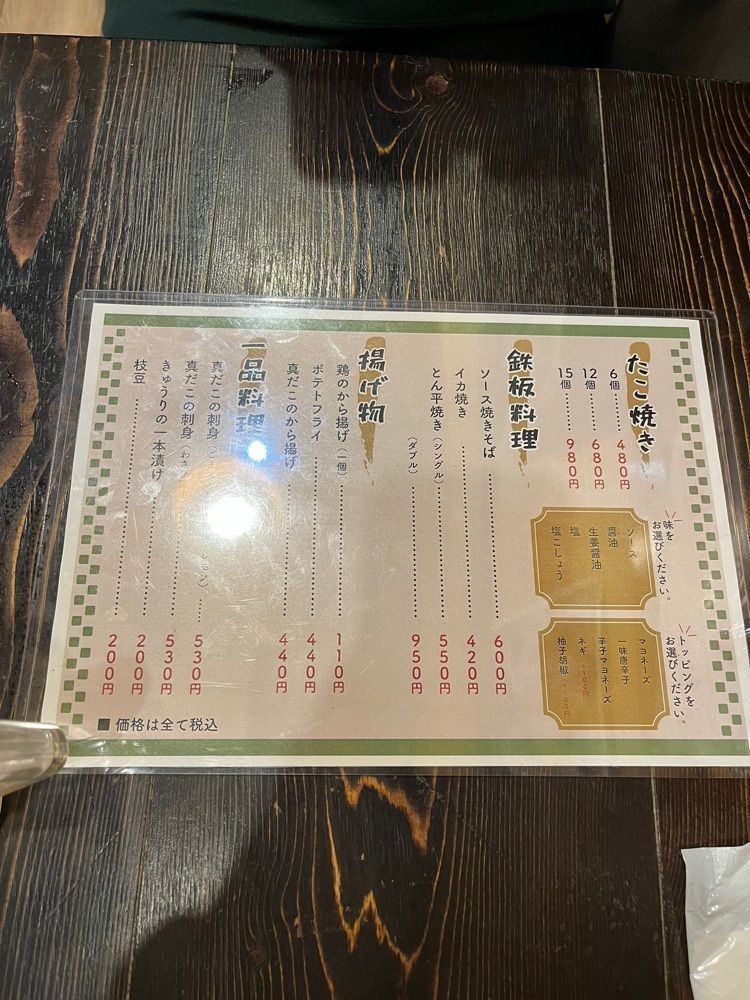 たこ焼き
6個 480円
12個 680円
15個 980円
味を
お選びください。
ソース
醤油
生姜醤油
塩
塩こしょう
トッピングを
お選びください。
マヨネーズ
一味唐辛子
辛子マヨネーズ
ネギ(+100円)
柚子胡椒 +100円
鉄板料理
ソース焼きそば 600円
イカ焼き 420円
とん平焼き(シングル) 550円
(ダブル) 950円
揚げ物
鶏のから揚げ(一個) 110円
ポテトフライ 440円
真だこのから揚げ 440円
一品料理
真だこの刺身 530円
真だこの刺身(わさ 530円
きゅうりの一本漬け 200円
枝豆 200円
■ 価格は全て税込